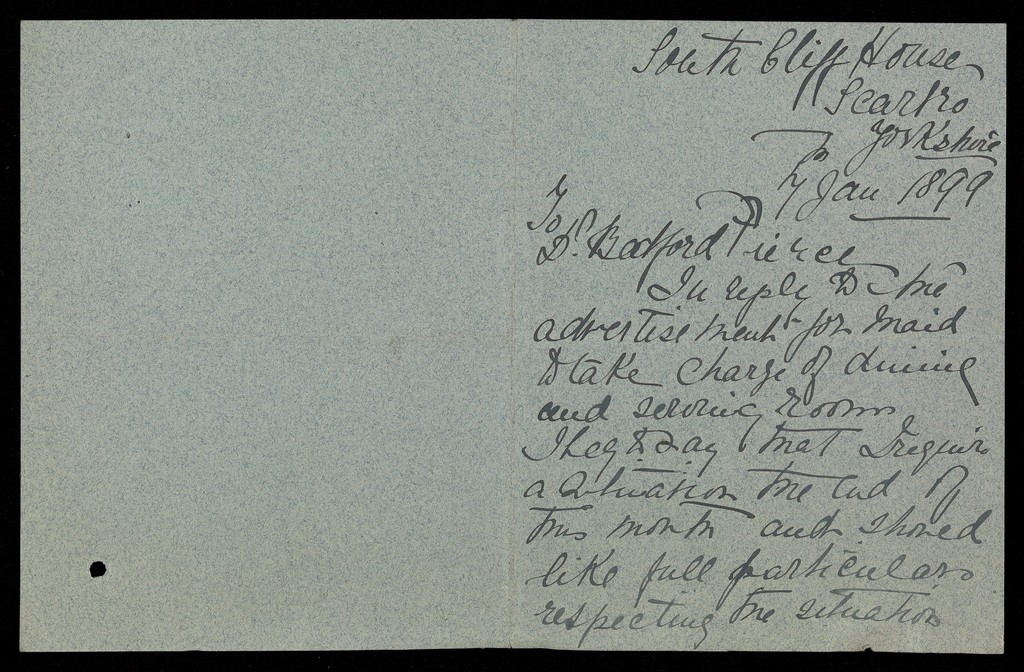 South Cliff House
Scarbro
Yorkshire
7 Jan 1899
To
Dr. Bedford Pierce
In reply to the
advertisement for maid
to take charge of dining
and serving rooms
I beg to say that I require
a situation the end of
this month and should
like full particulars
respecting the situation